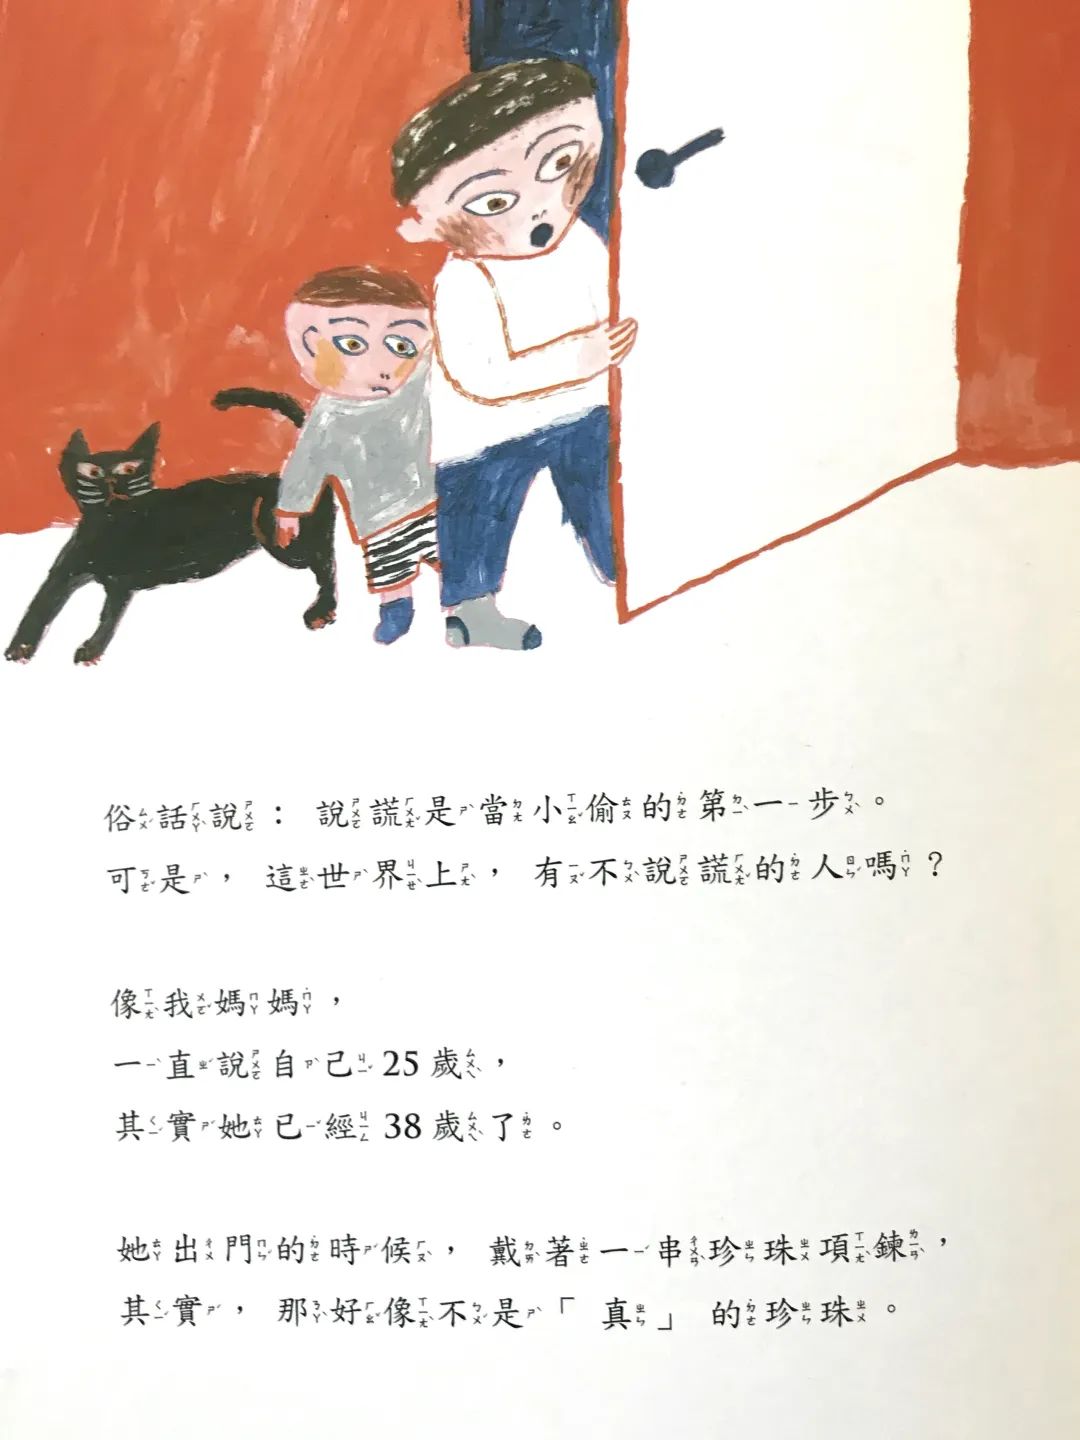 俗話說：說謊是當小偷的第一步。
可是，這世界上，有不說謊的人嗎？
像我媽媽，
一直說自己25歲，
其實她已經38歲了。
她出門的時候，戴著一串珍珠項鍊，
其實，那好像不是「真」的珍珠。